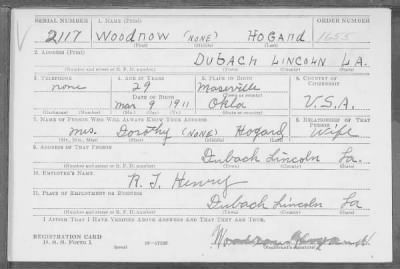 SERIAL NUMBER 1. NAME (Print) ORDER NUMBER
2117 WOODROW (NONE) HOGARD 1655
(First) (Middle) (Last)
2. ADDRESS (Print)
DUBACH LINCOLN LA.
(Number and street or R. F. D. number) (Town) (County) (State)
3. TELEPHONE 4. AGE IN YEARS 5. PLACE OF BIRTH 6. COUNTRY OF CITIZENSHIP
none 29 Maseville
DATE OF BIRTH (Town or county)
Mar 9 1911 Okla U.S.A.
(Exchange) (Number) (Mo.) (Day) (Yr.) (State or country)
7. NAME OF PERSON WHO WILL ALWAYS KNOW YOUR ADDRESS 8. RELATIONSHIP OF THAT PERSON
Mrs. Dorothy (NONE) Hogard Wife
(Mr., Mrs., Miss) (First) (Middle) (Last)
9. ADDRESS OF THAT PERSON
Dubach Lincoln La.
(Number and street or R. F. D. number) (Town) (County) (State)
10. EMPLOYER'S NAME
R. T. Henry
11. PLACE OF EMPLOYMENT OR BUSINESS
Dubach Lincoln La
(Number and street or R. F. D. number) (Town) (County) (State)
I AFFIRM THAT I HAVE VERIFIED ABOVE ANSWERS AND THAT THEY ARE TRUE.
REGISTRATION CARD
D. S. S. Form 1 (over) Woodrow Hogard
(Registrant's signature)